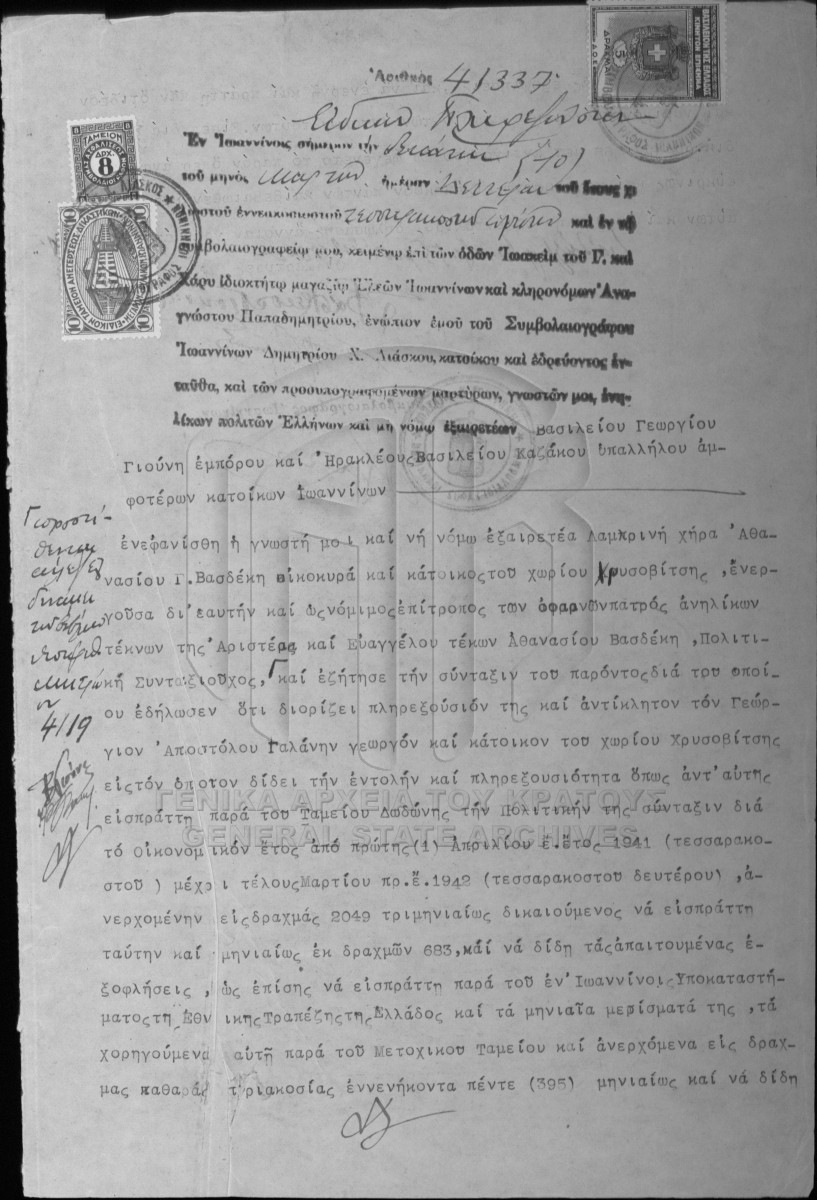 Ἀριθμὸς 41337
Εἰδικὸν Πληρεξούσιον
Ἐν Ἰωαννίνοις σήμερον τὴν δεκάτην (10)
τοῦ μηνὸς Μαρτίου ἡμέραν Δευτέραν τοῦ ἔτους χι
λιοστοῦ ἐννεακοσιοστοῦ τεσσαρακοστοῦ πρώτου καὶ ἐν τῷ
συμβολαιογραφείῳ μου, κειμένῳ ἐπὶ τῶν ὁδῶν Ἰωακεὶμ τοῦ Γ. καὶ
Χάρυ ἰδιοκτήτῳ μαγαζίῳ Ἐλεῶν Ἰωαννίνων καὶ κληρονόμων Ἀνα-
γνώστου Παπαδημητρίου, ἐνώπιον ἐμοῦ τοῦ Συμβολαιογράφου
Ἰωαννίνων Δημητρίου Χ. Λιάσκου, κατοίκου καὶ ἑδρεύοντος ἐν-
ταῦθα, καὶ τῶν προσυπογραφομένων μαρτύρων, γνωστῶν μοι, ἐνη-
λίκων πολιτῶν Ἑλλήνων καὶ μὴ νόμῳ ἐξαιρετέων Βασιλείου Γεωργίου
Γιούνη ἐμπόρου καί Ἡρακλέους Βασιλείου Καζάκου ὑπαλλήλου ἀμ-
φοτέρων κατοίκων Ἰωαννίνων
ἐνεφανίσθη ἡ γνωστή μοι καί νή νόμῳ ἐξαιρετέα Λαμπρινή χήρα Ἀθα-
νασίου Γ. Βασδέκη οἰκοκυρά καί κάτοικος τοῦ χωρίου Χρυσοβίτσης, ἐνερ-
γοῦσα δι' ἑαυτήν καί ὡς νόμιμος ἐπίτροπος τῶν ὀφαρνῶν πατρός ἀνηλίκων
τέκνων της Ἀριστέας καί Εὐαγγέλου τέκων Ἀθανασίου Βασδέκη, Πολιτι-
κή Συνταξιοῦχος, Γ καί ἐζήτησε τήν σύνταξιν τοῦ παρόντος διά τρυ ὁποί-
ου ἐδήλωσεν ὅτι διορίζει πληρεξούσιόν της καί ἀντίκλητον τόν Γεώρ-
γιον Ἀποστόλου Γαλάνην γεωργόν καί κάτοικον τοῦ χωρίου Χρυσοβίτσης
εἰς τόν ὁποῖον δίδει τήν ἐντολήν καί πληρεξουσιότητα ὅπως ἀντ' αὐτῆς
εἰσπράττῃ παρά τοῦ Ταμείου Δωδώνης τήν Πολιτικήν της σύνταξιν διά
τό Οἰκονομικόν ἔτος ἀπό πρώτης (1) Ἀπριλίου ἐ. ἔτος 1941 (τεσσαρακο-
στοῦ ) μέχρι τέλους Μαρτίου πρ. ἔ. 1942 (τεσσαρακοστοῦ δευτέρου), ἀ-
νερχομένην εἰς δραχμάς 2049 τριμηνιαίως δικαιούμενος νά εἰσπράττῃ
ταύτην καί μηνιαίως ἐκ δραχμῶν 683, καί νά δίδῃ τάς ἀπαιτουμένας ἐ-
ξοφλήσεις, ὡς ἐπίσης νά εἰσπράττῃ παρά τοῦ ἐν Ἰωαννίνοις Ὑποκαταστή-
ματος τῆ Ἐθνικης Τραπέζης της Ἑλλάδος καί τά μηνιαῖα μερίσματά της, τά
χορηγούμενα αὐτῇ παρά τοῦ Μετοχικοῦ Ταμείου καί ἀνερχόμενα εἰς δραχ-
μας καθαράς τριακοσίας ἐννενήκοντα πέντε (395) μηνιαίως καί νά δίδῃ
4/19
ΔΡΧ. 8
ΤΑΜΕΙΟΝ
10 10
ΔΡΑΧΜΑΙ 5
ΓΕΝΙΚΑ ΑΡΧΕΙΑ ΤΟΥ ΚΡΑΤΟΥΣ
GENERAL STATE ARCHIVES